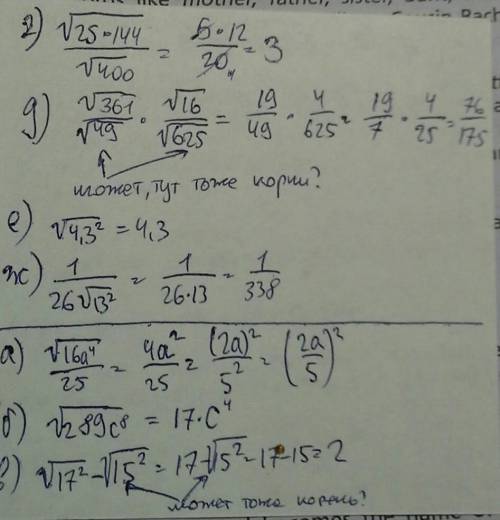 think like mother, father, sister,
г) √(25·144) / √400 = 5·12 / 20 = 3
д) √361 / √49 · √16 / √625 = 19/49 · 4/625 = 19/7 · 4/25 = 76/175
может, тут тоже корни?
е) √4,3² = 4,3
ж) 1 / 26√13² = 1 / 26·13 = 1/338
а) √16a⁴ / 25 = 4a² / 25 = (2a)² / 5² = (2a/5)²
б) √289c⁸ = 17·c⁴
в) √17² - √15² = 17-√15² = 17-15=2
может тоже корень?